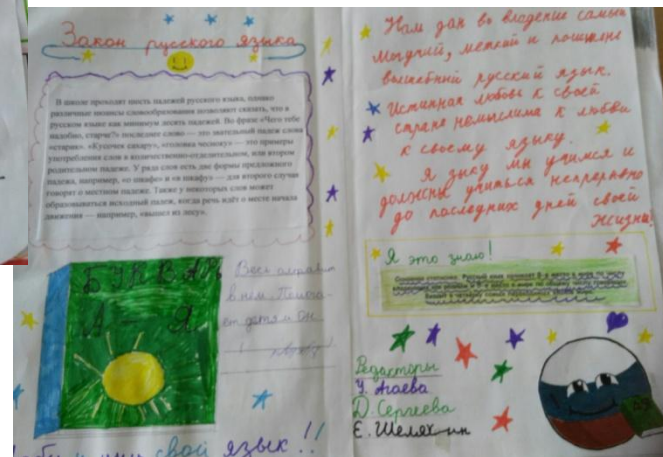 Закон русского языка
В школе проходят шесть падежей русского языка, однако
различные нюансы словообразования позволяют сказать, что в
русском языке как минимум десять падежей. Во фразе «Чего тебе
надобно, старче?» последнее слово — это звательный падеж слова
«старик». «Кусочек сахару», «головка чесноку» — это примеры
употребления слов в количественно-отделительном, или втором
родительном падеже. У ряда слов есть две формы предложного
падежа, например, «о шкафе» и «в шкафу» — для второго случая
говорят о местном падеже. Также у некоторых слов может
образовываться исходный падеж, когда речь идёт о месте начала
движения — например, «вышел из лесу».
БУКВАРЬ
А - Я
Весь алфавит
в нем. Помога-
ет детям он
свой язык!!
Нам дан во владение самый
могучий, меткий и поистине
волшебный русский язык.
Истинная любовь к своей
стране немыслима к любви
к своему языку.
Языку мы учимся и
должны учиться непрерывно
до последних дней своей
жизни!
Я это знаю!
Редакторы
У. Агаева
Д. Сергеева
Е. Шелях